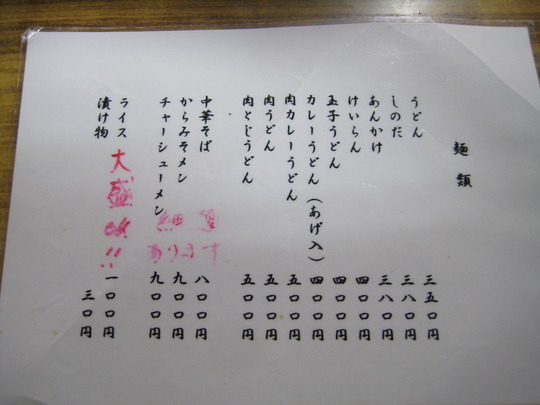 麺類
うどん 三五〇円
しのだ 三八〇円
あんかけ 三八〇円
けいらん 四〇〇円
玉子うどん 四〇〇円
カレーうどん(あげ入) 四〇〇円
肉カレーうどん 五〇〇円
肉うどん 五〇〇円
肉とじうどん 五〇〇円
中華そば 八〇〇円
からみそメン 九〇〇円
チャーシューメン 九〇〇円
あります
ライス 一〇〇円
漬け物 三〇円
大盛ok!!